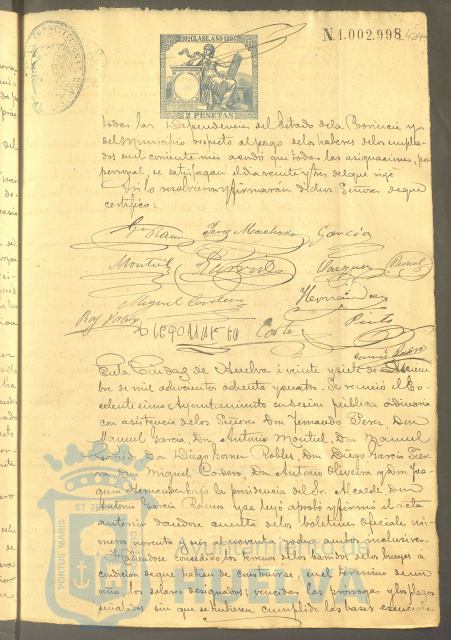 10ª CLASE. AÑO 1884
N.1.002,998
2 PESETAS
todas las Dependencias del Estado de la Provincia y
del Municipio respecto al pago de los haberes de los emplea-
dos en el corriente mes acordó que todas las asignaciones, por
personal, se satisfagan el dia veinte y tres del que rije
Asi lo resolvieron y firmarán dichos Señores de que
certifico:
Perez Machado Garcia
Montiel Vazquez
Miguel Cordero Hernandez
Pinto
En la Ciudad de Huelva á veinte y siete de Diciem-
bre de mil ochocientos ochenta y cuatro. Se reunió el Es-
celentisimo Ayuntamiento en sesion pública ordinaria
con asistencia de los Señores Don Fernando Perez, Don
Manuel Garcia, Don Antonio Montiel, Don Manuel
Don Diego Robles, Don Diego Garcia
Don Miguel Cordero, Don Antonio Oliveira y Don Joa-
quin Hernandez bajo la presidencia del Sr. Alcalde Don
Antonio Garcia Ramos y se leyó aprobó y firmó el acta
anterior dandose cuenta de los boletines oficiales nú-
meros noventa y seis al noventa y ocho ambos inclusives.
Habiendose concedido los terrenos de los
condicion de que habian de construirse, en el término de un
año los solares designados; vencidas las prórrogas y los plazos
señalados sin que se hubieren cumplido las bases esenciales
PORTUS MARIS ET TERRAE
Ayuntamiento de
HUELVA